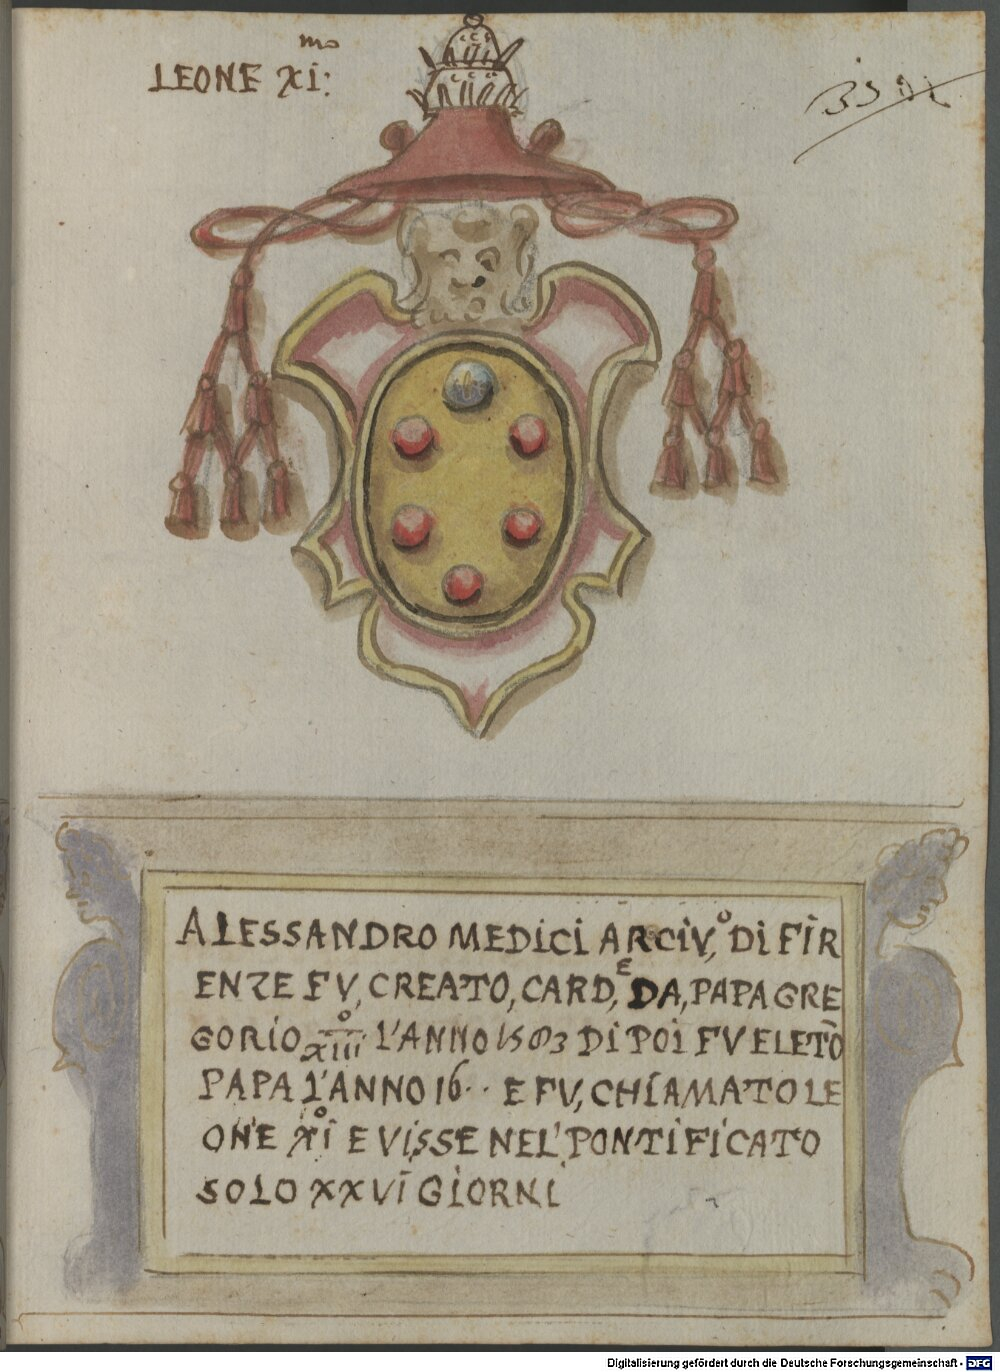 LEONE XI: mo
ALESSANDRO MEDICI ARCIV,o DI FIR
ENZE FV, CREATO, CARD,E DA, PAPA GRE
GORIO XIIIo L'ANNO 1583 DI POI FV ELETO
PAPA L'ANNO 16.. E FV, CHIAMATO LE
ONE XIo E VISSE NEL' PONTIFICATO
SOLO XXVI GIORNI
Digitalisierung gefördert durch die Deutsche Forschungsgemeinschaft - DFG